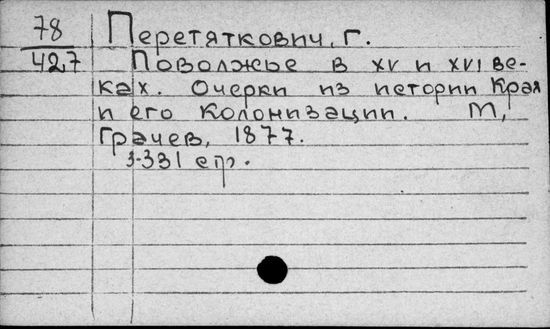 78
427
Перетяткович, Г.
Поволжье в XV и XVI ве-
ках. Очерки из истории края
и его колонизации. М,
Грачев, 1877.
3-331 стр.